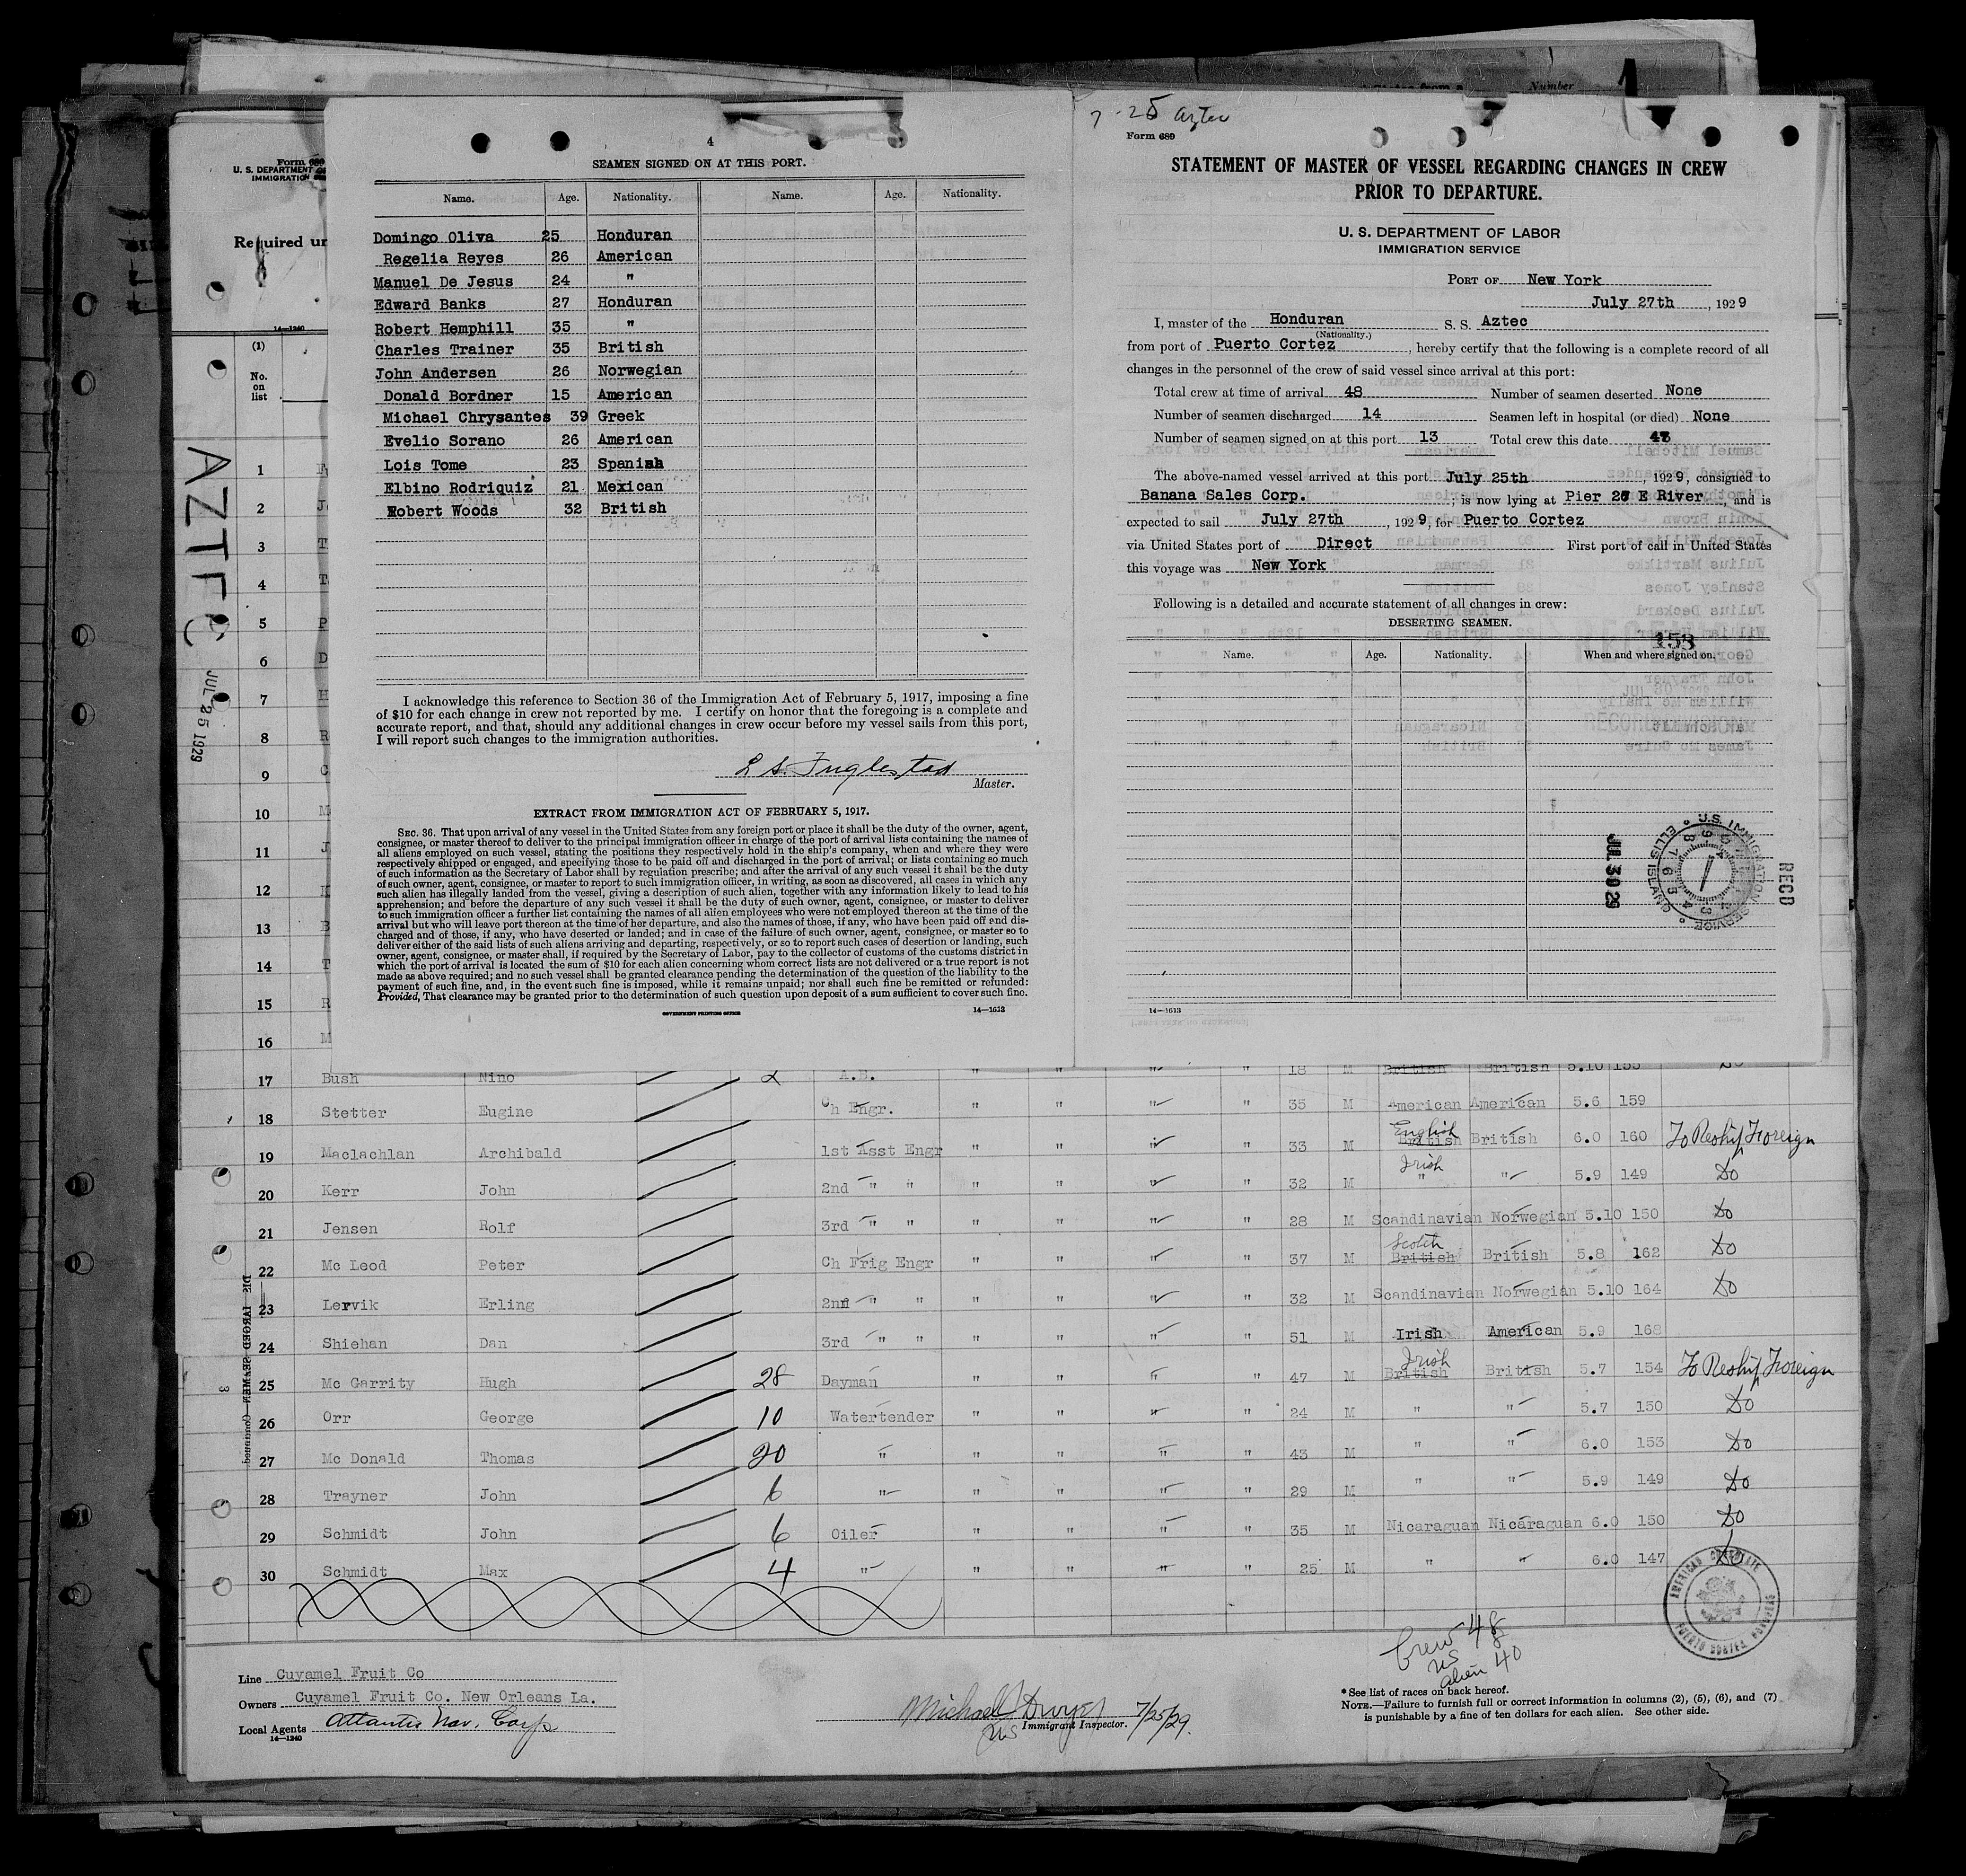 4
SEAMEN SIGNED ON AT THIS PORT.
Name. Age. Nationality. Name. Age. Nationality.
Domingo Oliva 25 Honduran
Regelia Reyes 26 American
Manuel De Jesus 24 "
Edward Banks 27 Honduran
Robert Hemphill 35 "
Charles Trainer 35 British
John Andersen 26 Norwegian
Donald Bordner 15 American
Michael Chrysantes 39 Greek
Evelio Sorano 26 American
Lois Tome 23 Spanish
Elbino Rodriquiz 21 Mexican
Robert Woods 32 British
I acknowledge this reference to Section 36 of the Immigration Act of February 5, 1917, imposing a fine
of $10 for each change in crew not reported by me. I certify on honor that the foregoing is a complete and
accurate report, and that, should any additional changes in crew occur before my vessel sails from this port,
I will report such changes to the immigration authorities.
Master.
EXTRACT FROM IMMIGRATION ACT OF FEBRUARY 5, 1917.
SEC. 36. That upon arrival of any vessel in the United States from any foreign port or place it shall be the duty of the owner, agent,
consignee, or master thereof to deliver to the principal immigration officer in charge of the port of arrival lists containing the names of
all aliens employed on such vessel, stating the positions they respectively hold in the ship's company, when and where they were
respectively shipped or engaged, and specifying those to be paid off and discharged in the port of arrival; or lists containing so much
of such information as the Secretary of Labor shall by regulation prescribe; and after the arrival of any such vessel it shall be the duty
of such owner, agent, consignee, or master to report to such immigration officer, in writing, as soon as discovered, all cases in which any
such alien has illegally landed from the vessel, giving a description of such alien, together with any information likely to lead to his
apprehension; and before the departure of any such vessel it shall be the duty of such owner, agent, consignee, or master to deliver
to such immigration officer a further list containing the names of all alien employees who were not employed thereon at the time of the
arrival but who will leave port thereon at the time of her departure, and also the names of those, if any, who have been paid off and dis-
charged and of those, if any, who have deserted or landed; and in case of the failure of such owner, agent, consignee, or master so to
deliver either of the said lists of such aliens arriving and departing, respectively, or so to report such cases of desertion or landing, such
owner, agent, consignee, or master shall, if required by the Secretary of Labor, pay to the collector of customs of the customs district in
which the port of arrival is located the sum of $10 for each alien concerning whom correct lists are not delivered or a true report is not
made as above required; and no such vessel shall be granted clearance pending the determination of the question of the liability to the
payment of such fine, and, in the event such fine is imposed, while it remains unpaid; nor shall such fine be remitted or refunded:
Provided, That clearance may be granted prior to the determination of such question upon deposit of a sum sufficient to cover such fine.
GOVERNMENT PRINTING OFFICE 14—1613
7-25 Aztec
Form 689
STATEMENT OF MASTER OF VESSEL REGARDING CHANGES IN CREW
PRIOR TO DEPARTURE.
U. S. DEPARTMENT OF LABOR
IMMIGRATION SERVICE
PORT OF New York
July 27th, 1929
I, master of the Honduran S. S. Aztec
(Nationality.)
from port of Puerto Cortez, hereby certify that the following is a complete record of all
changes in the personnel of the crew of said vessel since arrival at this port:
Total crew at time of arrival 48 Number of seamen deserted None
Number of seamen discharged 14 Seamen left in hospital (or died) None
Number of seamen signed on at this port 13 Total crew this date 47
The above-named vessel arrived at this port July 25th, 1929, consigned to
Banana Sales Corp. ; is now lying at Pier 27 E River, and is
expected to sail July 27th, 1929, for Puerto Cortez
via United States port of Direct First port of call in United States
this voyage was New York
Following is a detailed and accurate statement of all changes in crew:
DESERTING SEAMEN.
153
Name. Age. Nationality. When and where signed on.
JUL 30 29
U.S. IMMIGRATION SERVICE ELLIS ISLAND
REC'D
14—1613
Form 689
U. S. DEPARTMENT OF
IMMIGRATION
Required un
14—1240
(1)
No. on list
AZTEC JUL 25 1929
1
2
3
4
5
6
7
8
9
10
11
12
13
14
15
16
17 Bush Nino 2 A.B. " " " " 18 M British British 5.10 155 Do
18 Stetter Eugine Ch Engr. " " " " 35 M American American 5.6 159
19 Maclachlan Archibald 1st Asst Engr " " " " 33 M English British British 6.0 160 To Reship Foreign
20 Kerr John 2nd " " " " " " 32 M Irish " " 5.9 149 Do
21 Jensen Rolf 3rd " " " " " " 28 M Scandinavian Norwegian 5.10 150 Do
22 Mc Leod Peter Ch Frig Engr " " " " 37 M Scotch British British 5.8 162 Do
23 Lervik Erling 2nd " " " " " " 32 M Scandinavian Norwegian 5.10 164 Do
24 Shiehan Dan 3rd " " " " " " 51 M Irish American 5.9 168
25 Mc Garrity Hugh 28 Dayman " " " " 47 M Irish British British 5.7 154 To Reship Foreign
26 Orr George 10 Watertender " " " " 24 M " " 5.7 150 Do
27 Mc Donald Thomas 20 " " " " " 43 M " " 6.0 153 Do
28 Trayner John 6 " " " " " 29 M " " 5.9 149 Do
29 Schmidt John 6 Oiler " " " " 35 M Nicaraguan Nicaraguan 6.0 150 Do
30 Schmidt Max 4 " " " " " 25 M " " 6.0 147 Do
AMERICAN CONSULATE PUERTO CORTES HONDURAS
Crew 48
US
alien 40
Line Cuyamel Fruit Co
Owners Cuyamel Fruit Co. New Orleans La.
Local Agents Atlantic Nav. Corp
14—1240
Michael Dwyer 7/25/29.
US Immigrant Inspector.
*See list of races on back hereof.
NOTE.—Failure to furnish full or correct information in columns (2), (5), (6), and (7)
is punishable by a fine of ten dollars for each alien. See other side.